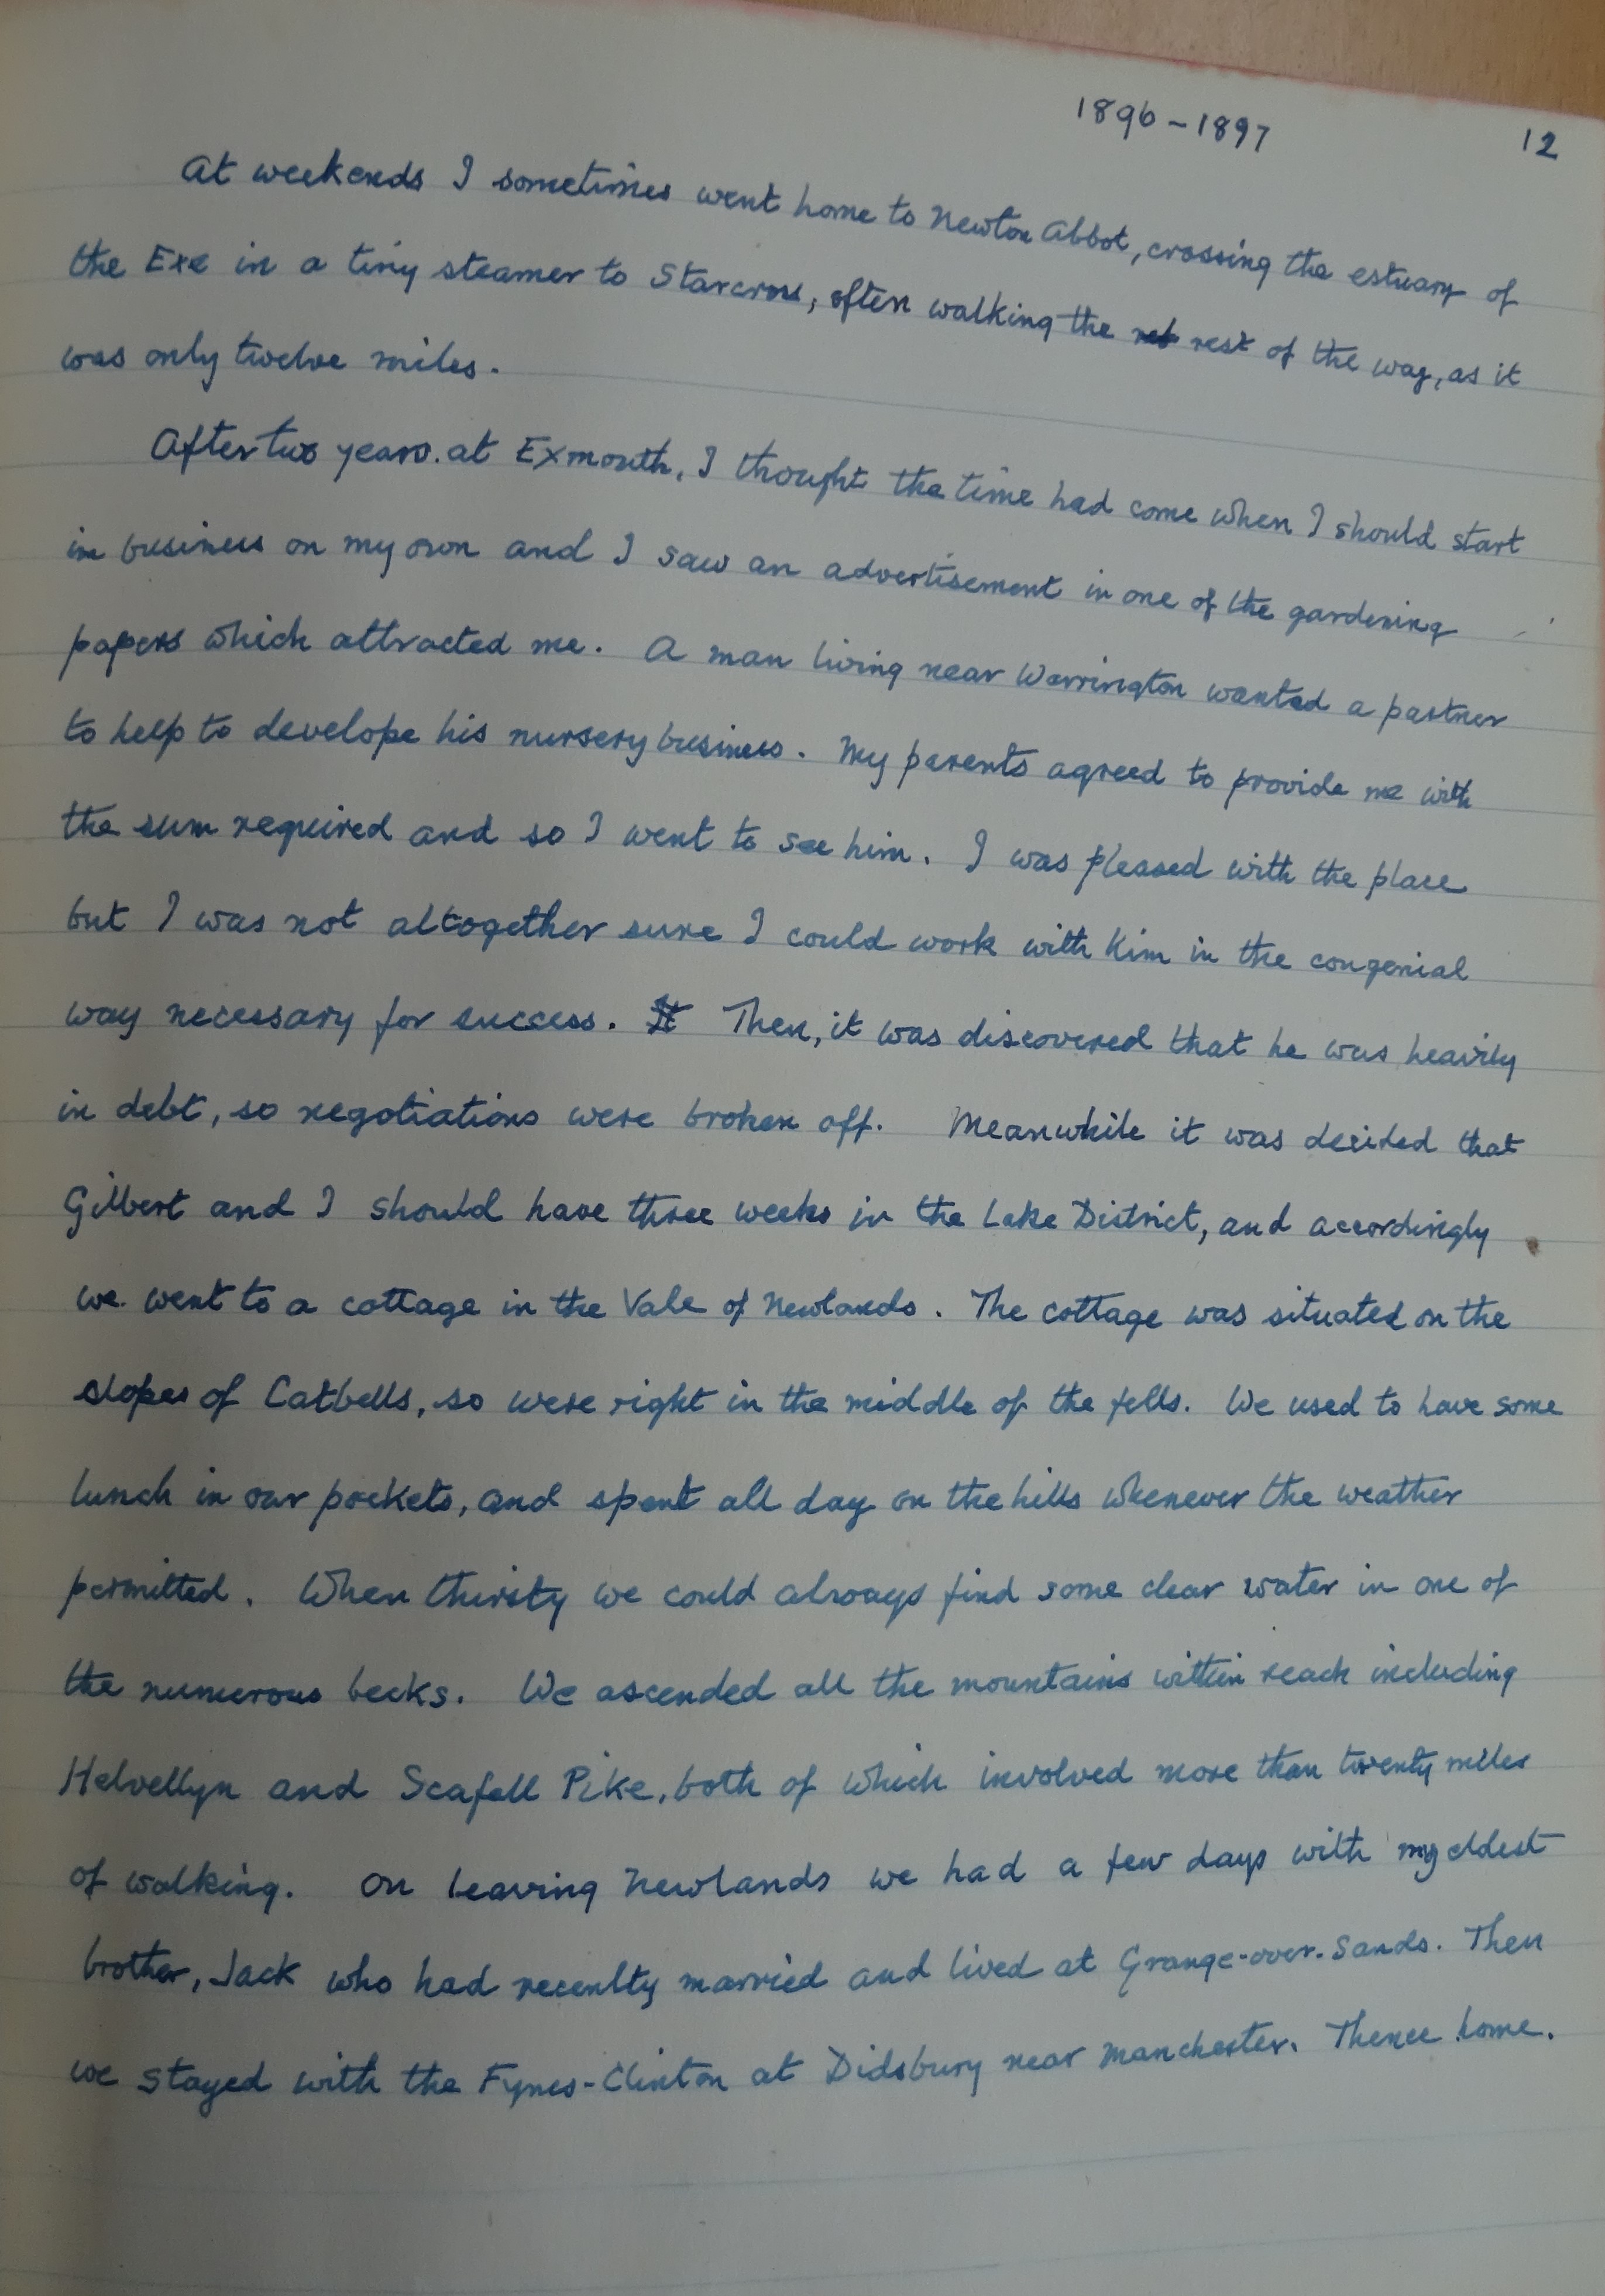 1896-1897 12
At weekends I sometimes went home to Newton Abbot, crossing the estuary of
the Exe in a tiny steamer to Starcross, often walking the rest of the way, as it
was only twelve miles.
After two years. at Exmouth, I thought the time had come when I should start
in business on my own and I saw an advertisement in one of the gardening
papers which attracted me. A man living near Warrington wanted a partner
to help to develope his nursery business. My parents agreed to provide me with
the sum required and so I went to see him. I was pleased with the place
but I was not altogether sure I could work with him in the congenial
way necessary for success. It Then, it was discovered that he was heavily
in debt, so negotiations were broken off. Meanwhile it was decided that
Gilbert and I should have three weeks in the Lake District, and accordingly
we went to a cottage in the Vale of Newlands. The cottage was situated on the
slopes of Catbells, so were right in the middle of the fells. We used to have some
lunch in our pockets, and spent all day on the hills whenever the weather
permitted. When thirsty we could always find some clear water in one of
the numerous becks. We ascended all the mountains within reach including
Helvellyn and Scafell Pike, both of which involved more than twenty miles
of walking. On leaving Newlands we had a few days with my eldest
brother, Jack who had recenlty married and lived at Grange-over-Sands. Then
we stayed with the Fynes-Clinton at Didsbury near Manchester. Thence home.